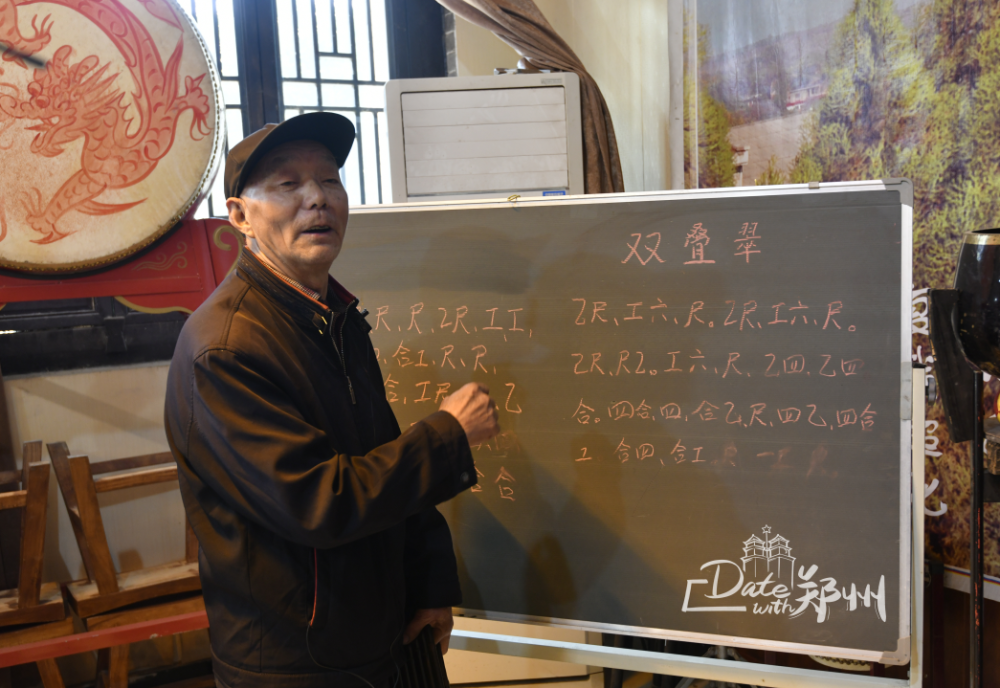 双叠翠
尺、尺、乙尺、工工、
合工、尺、尺、
合、工尺
乙
合合
乙尺、工六、尺。乙尺、工六、尺。
乙尺、尺乙。工六、尺、乙四、乙四
合。四合、四、合乙、尺、四乙、四合
工 合四、合工
Date
with郑州